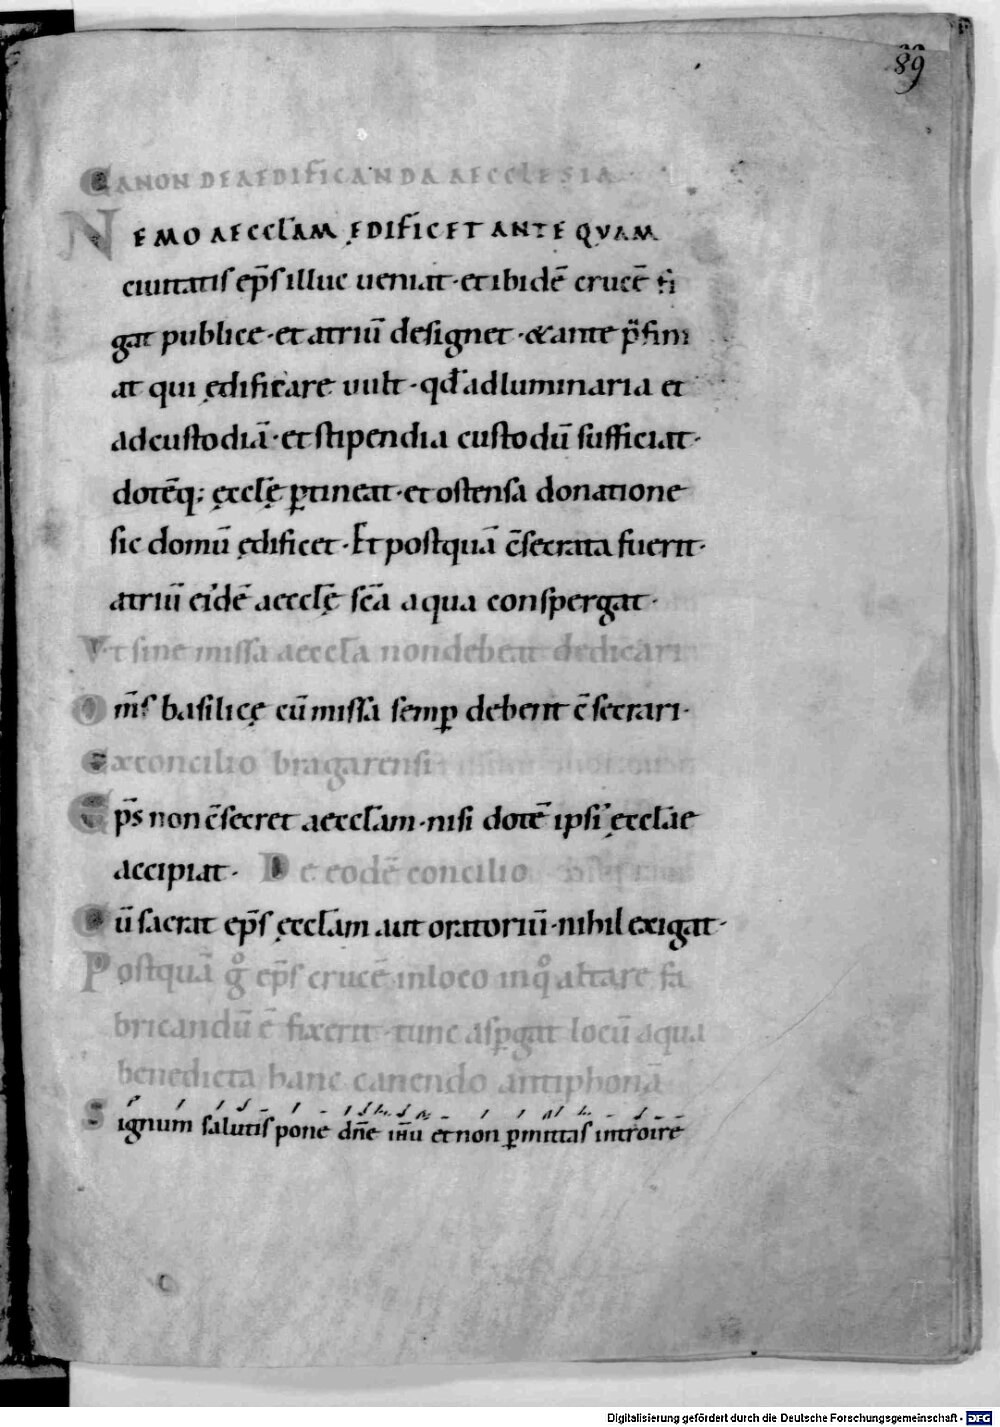 89
CANON DE AEDIFICANDA AECCLESIA
NEMO AECCLAM ĘDIFICET ANTE QVAM
ciuitatis ep̄s illuc ueniat · et ibidē crucē fi
gat publice · et atriū designet · & ante p̄fini
at qui ędificare uult · qd̄ ad luminaria et
ad custodiā · et stipendia custodū sufficiat ·
dotēq; ęcclę̄ ꝑtineat · et ostensa donatione
sic domū ędificet · Et postquā c̄secrata fuerit ·
atriū ei'dē aecclę̄ sc̄a aqua conspergat ·
Vt sine missa aeccl̄a non debeat dedicari
Om̄s basilicę cū missa semꝑ debent c̄secrari ·
Ex concilio bragarensi
Ep̄s non c̄secret aeccl̄am · nisi dotē ipsi' ęccl̄ae
accipiat · De eodē concilio
Cū sacrat ep̄s ęccl̄am aut oratoriū · nihil exigat ·
Postquā gͦ ep̄s crucē in loco in qͦ altare fa
bricandū ē fixerit · tunc asꝑgat locū aqua
benedicta hanc canendo antiphonā
Signum salutis pone dn̄e ih̄u et non ꝑmittas introire
Digitalisierung gefördert durch die Deutsche Forschungsgemeinschaft - DFG